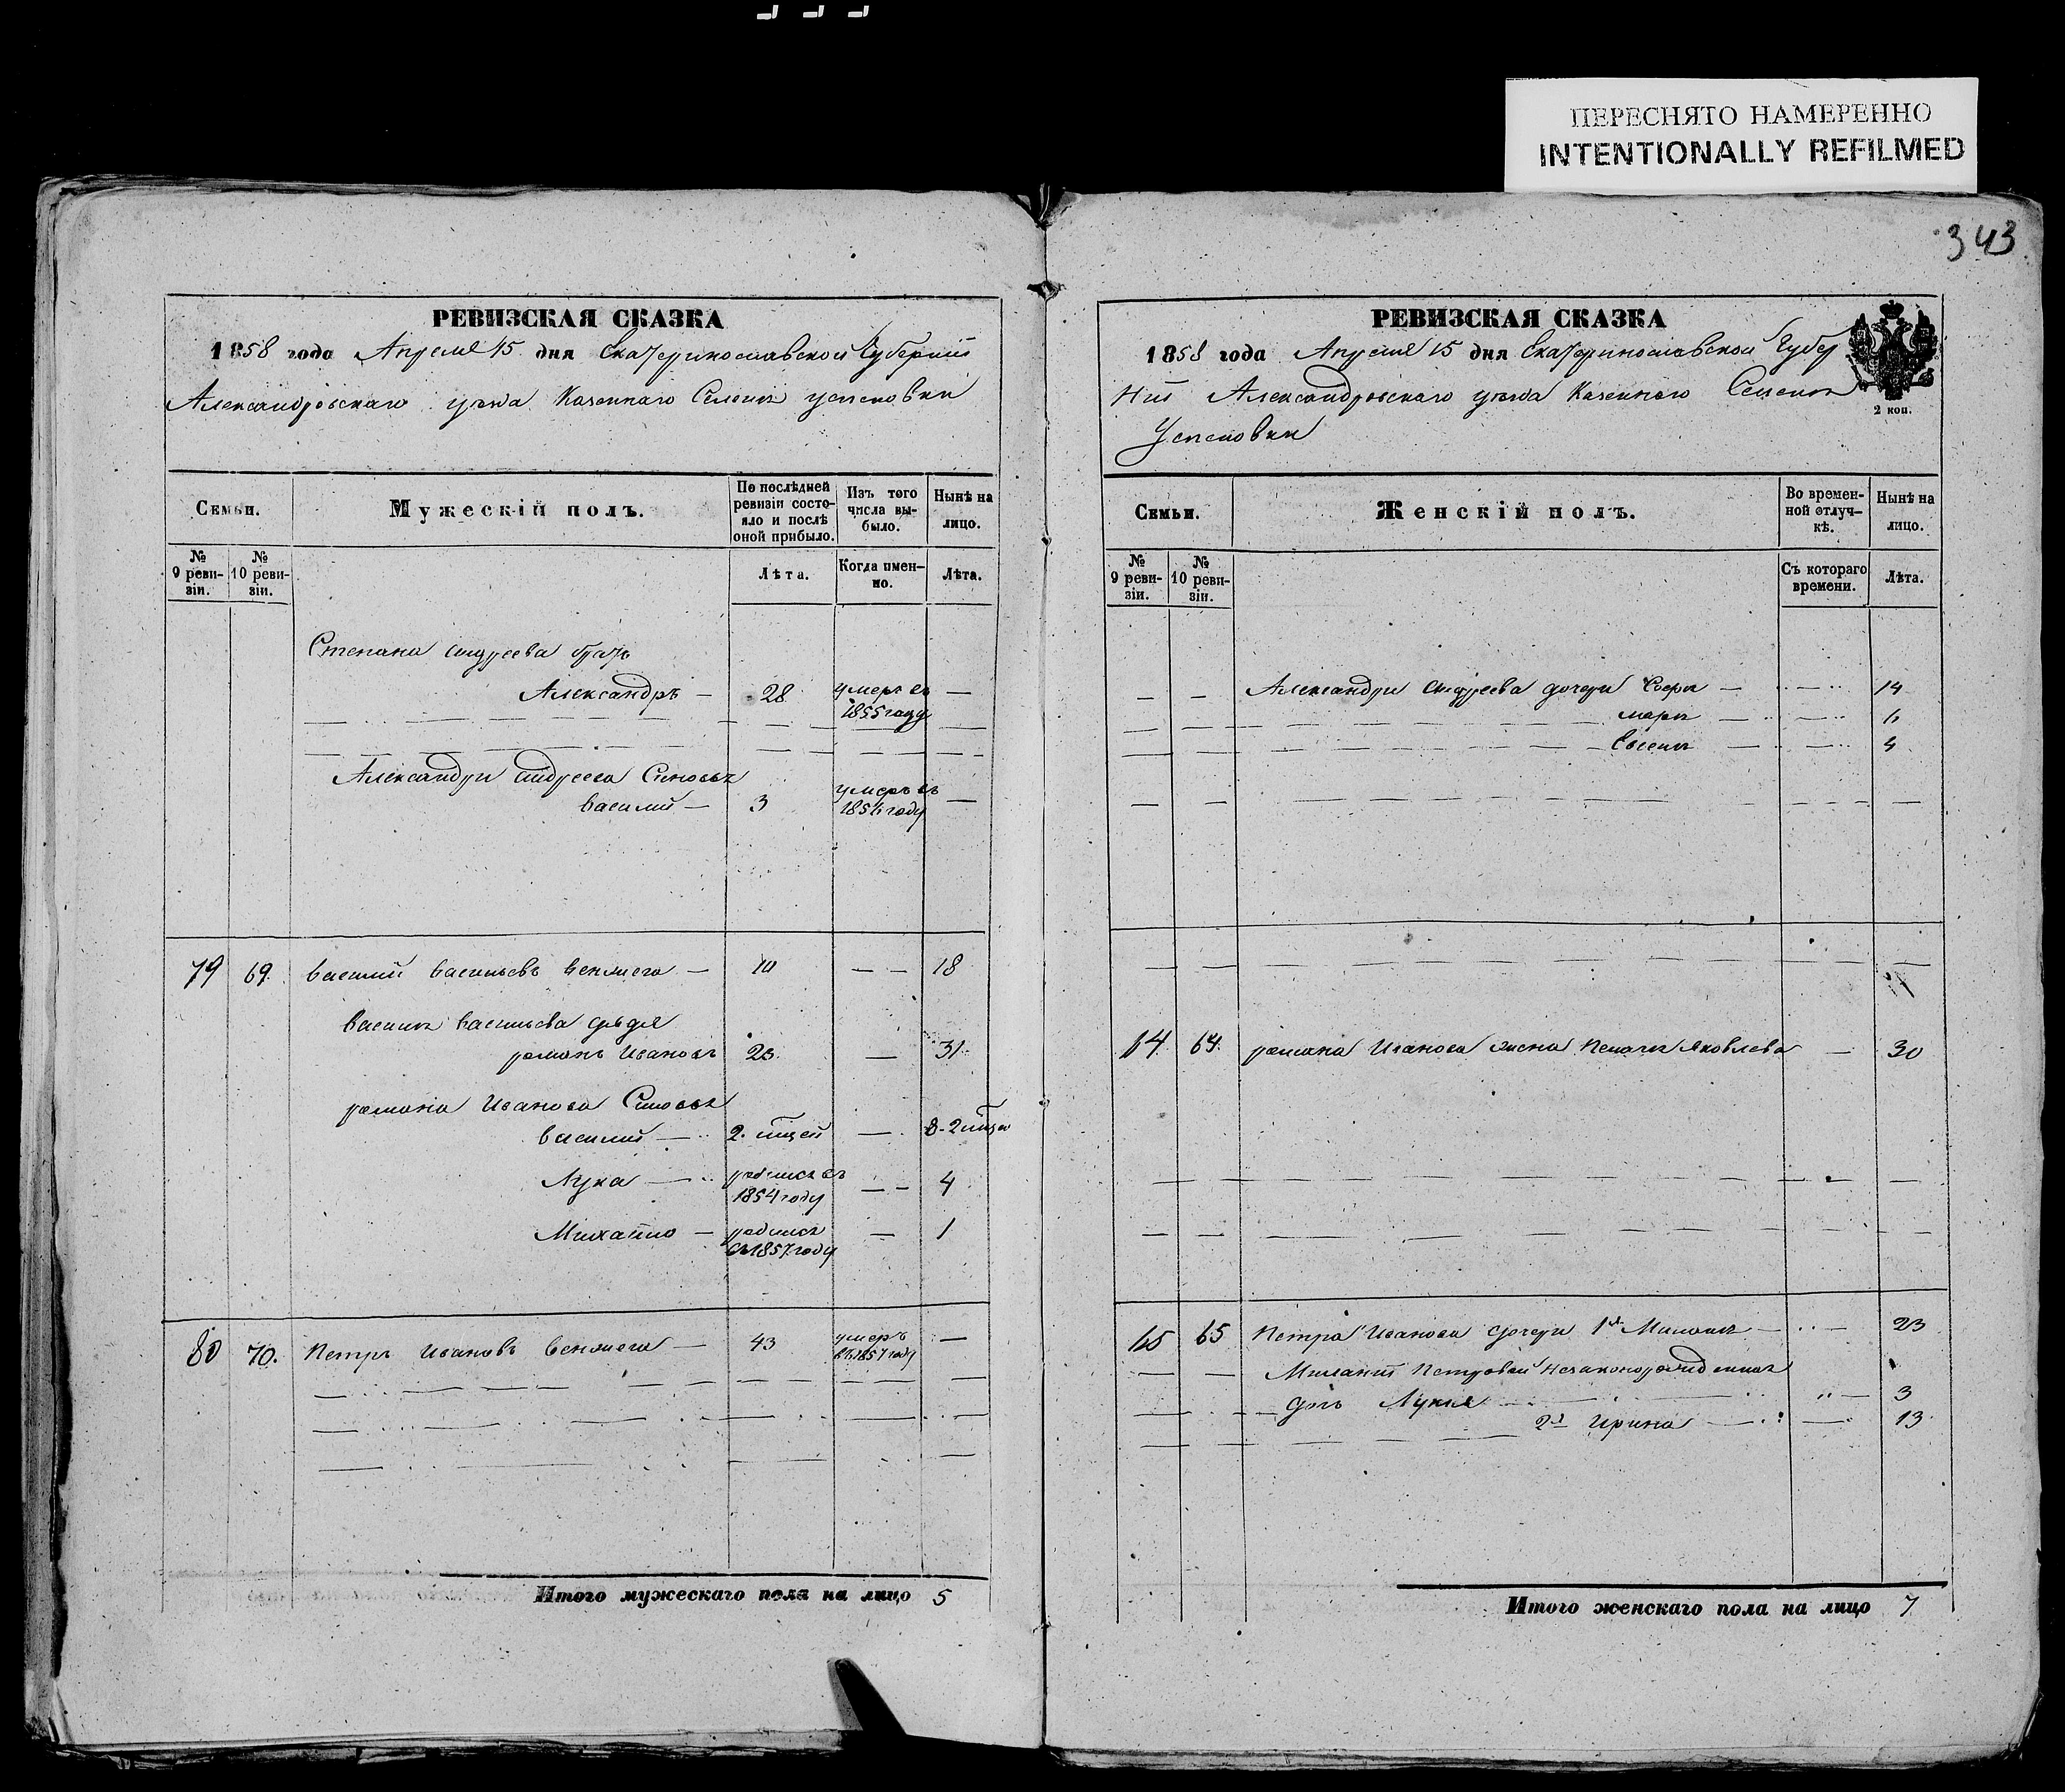 ПЕРЕСНЯТО НАМЕРЕННО
INTENTIONALLY REFILMED
343
РЕВИЗСКАЯ СКАЗКА
1858 года Апреля 15 дня Екатеринославской Губернии
Александровскаго уезда Казеннаго Селения Успеновки
Семьи.
Мужескій полъ.
По послѣдней ревизіи состояло и послѣ оной прибыло.
Изъ того числа выбыло.
Нынѣ на лицо.
№ 9 ревизіи.
№ 10 ревизіи.
Лѣта.
Когда именно.
Лѣта.
Степана андреева братъ
Александръ — 28 умеръ въ 1855 году —
Александра андреева Сыновья
василий — 3 умеръ въ году —
79 69. василий васильевъ — 10 — — 18
василия васильева дядя
романъ Ивановъ — 31
романа Иванова Сыновья
василий — 2. — 8-2
Лука — родился въ 1854 году — — 4
Михайло — родился въ 1857 году — 1
80 70. Петръ Ивановъ — 43 умеръ въ 1857 году —
Итого мужескаго пола на лицо 5
РЕВИЗСКАЯ СКАЗКА
1858 года Апреля 15 дня Екатеринославской Губер
нии Александровскаго уезда Казеннаго Селения
Успеновки
2 коп.
Семьи.
Женскій полъ.
Во временной отлучкѣ.
Нынѣ на лицо.
№ 9 ревизіи.
№ 10 ревизіи.
Съ котораго времени.
Лѣта.
— — Александра андреева дочери — 14
марья —
— 4
романа Иванова жена Яковлева — 30
65 Петра Иванова дочери 1я — 23
Петровой незаконорожденная
дочь — 3
2я Ирина — 13
Итого женскаго пола на лицо 7